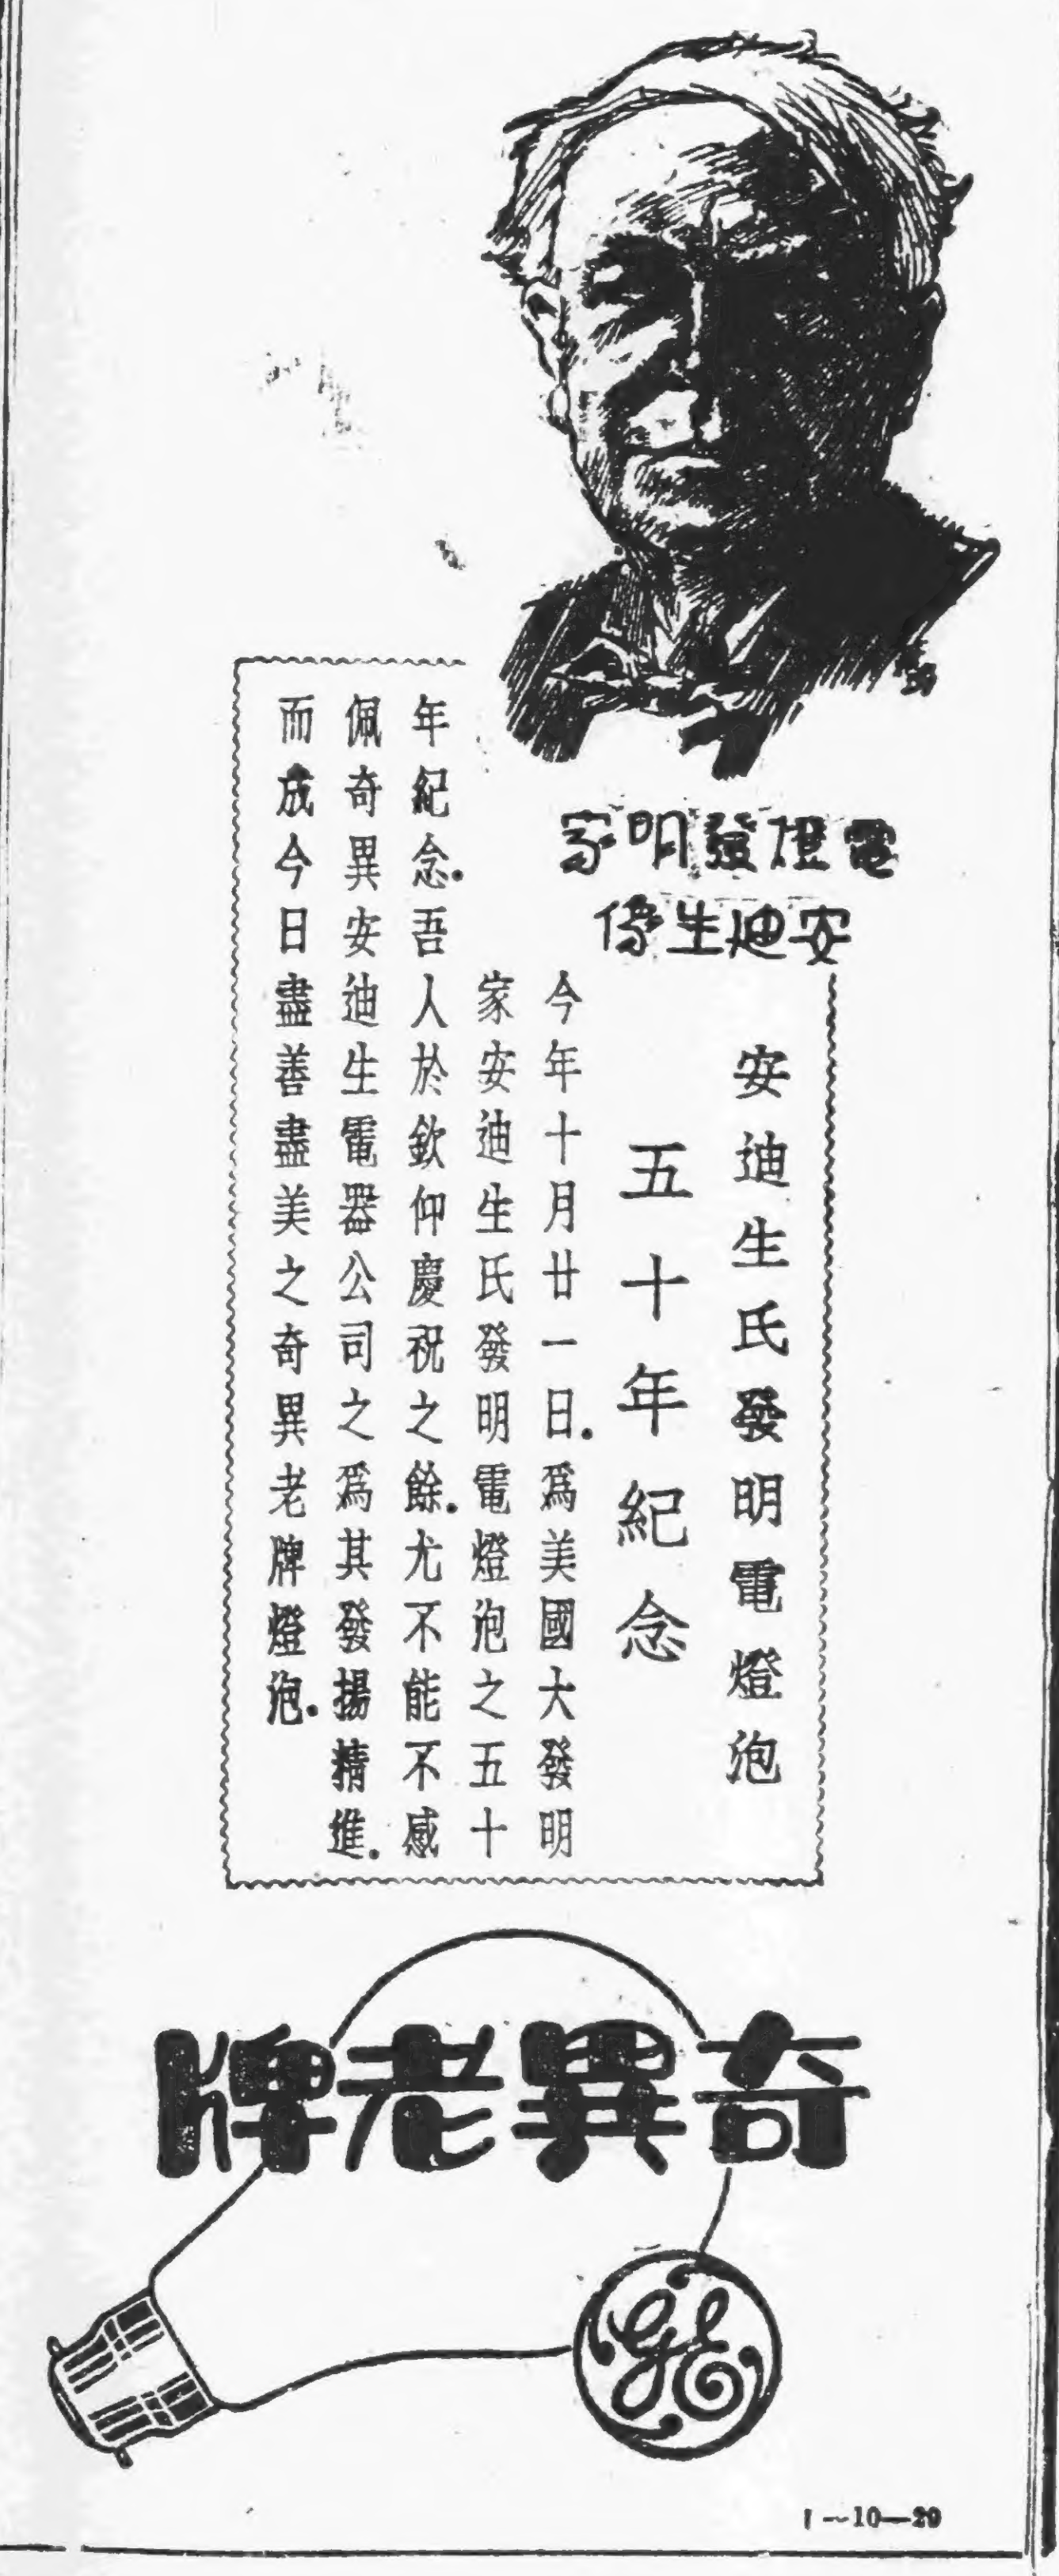 電燈發明家
安迪生像
安迪生氏發明電燈泡
五十年紀念
今年十月廿一日。爲美國大發明
家安迪生氏發明電燈泡之五十
年紀念。吾人於欽仰慶祝之餘。尤不能不感
佩奇異安迪生電器公司之爲其發揚精進。
而成今日盡善盡美之奇異老牌燈泡。
奇異老牌
GE
1—10—29